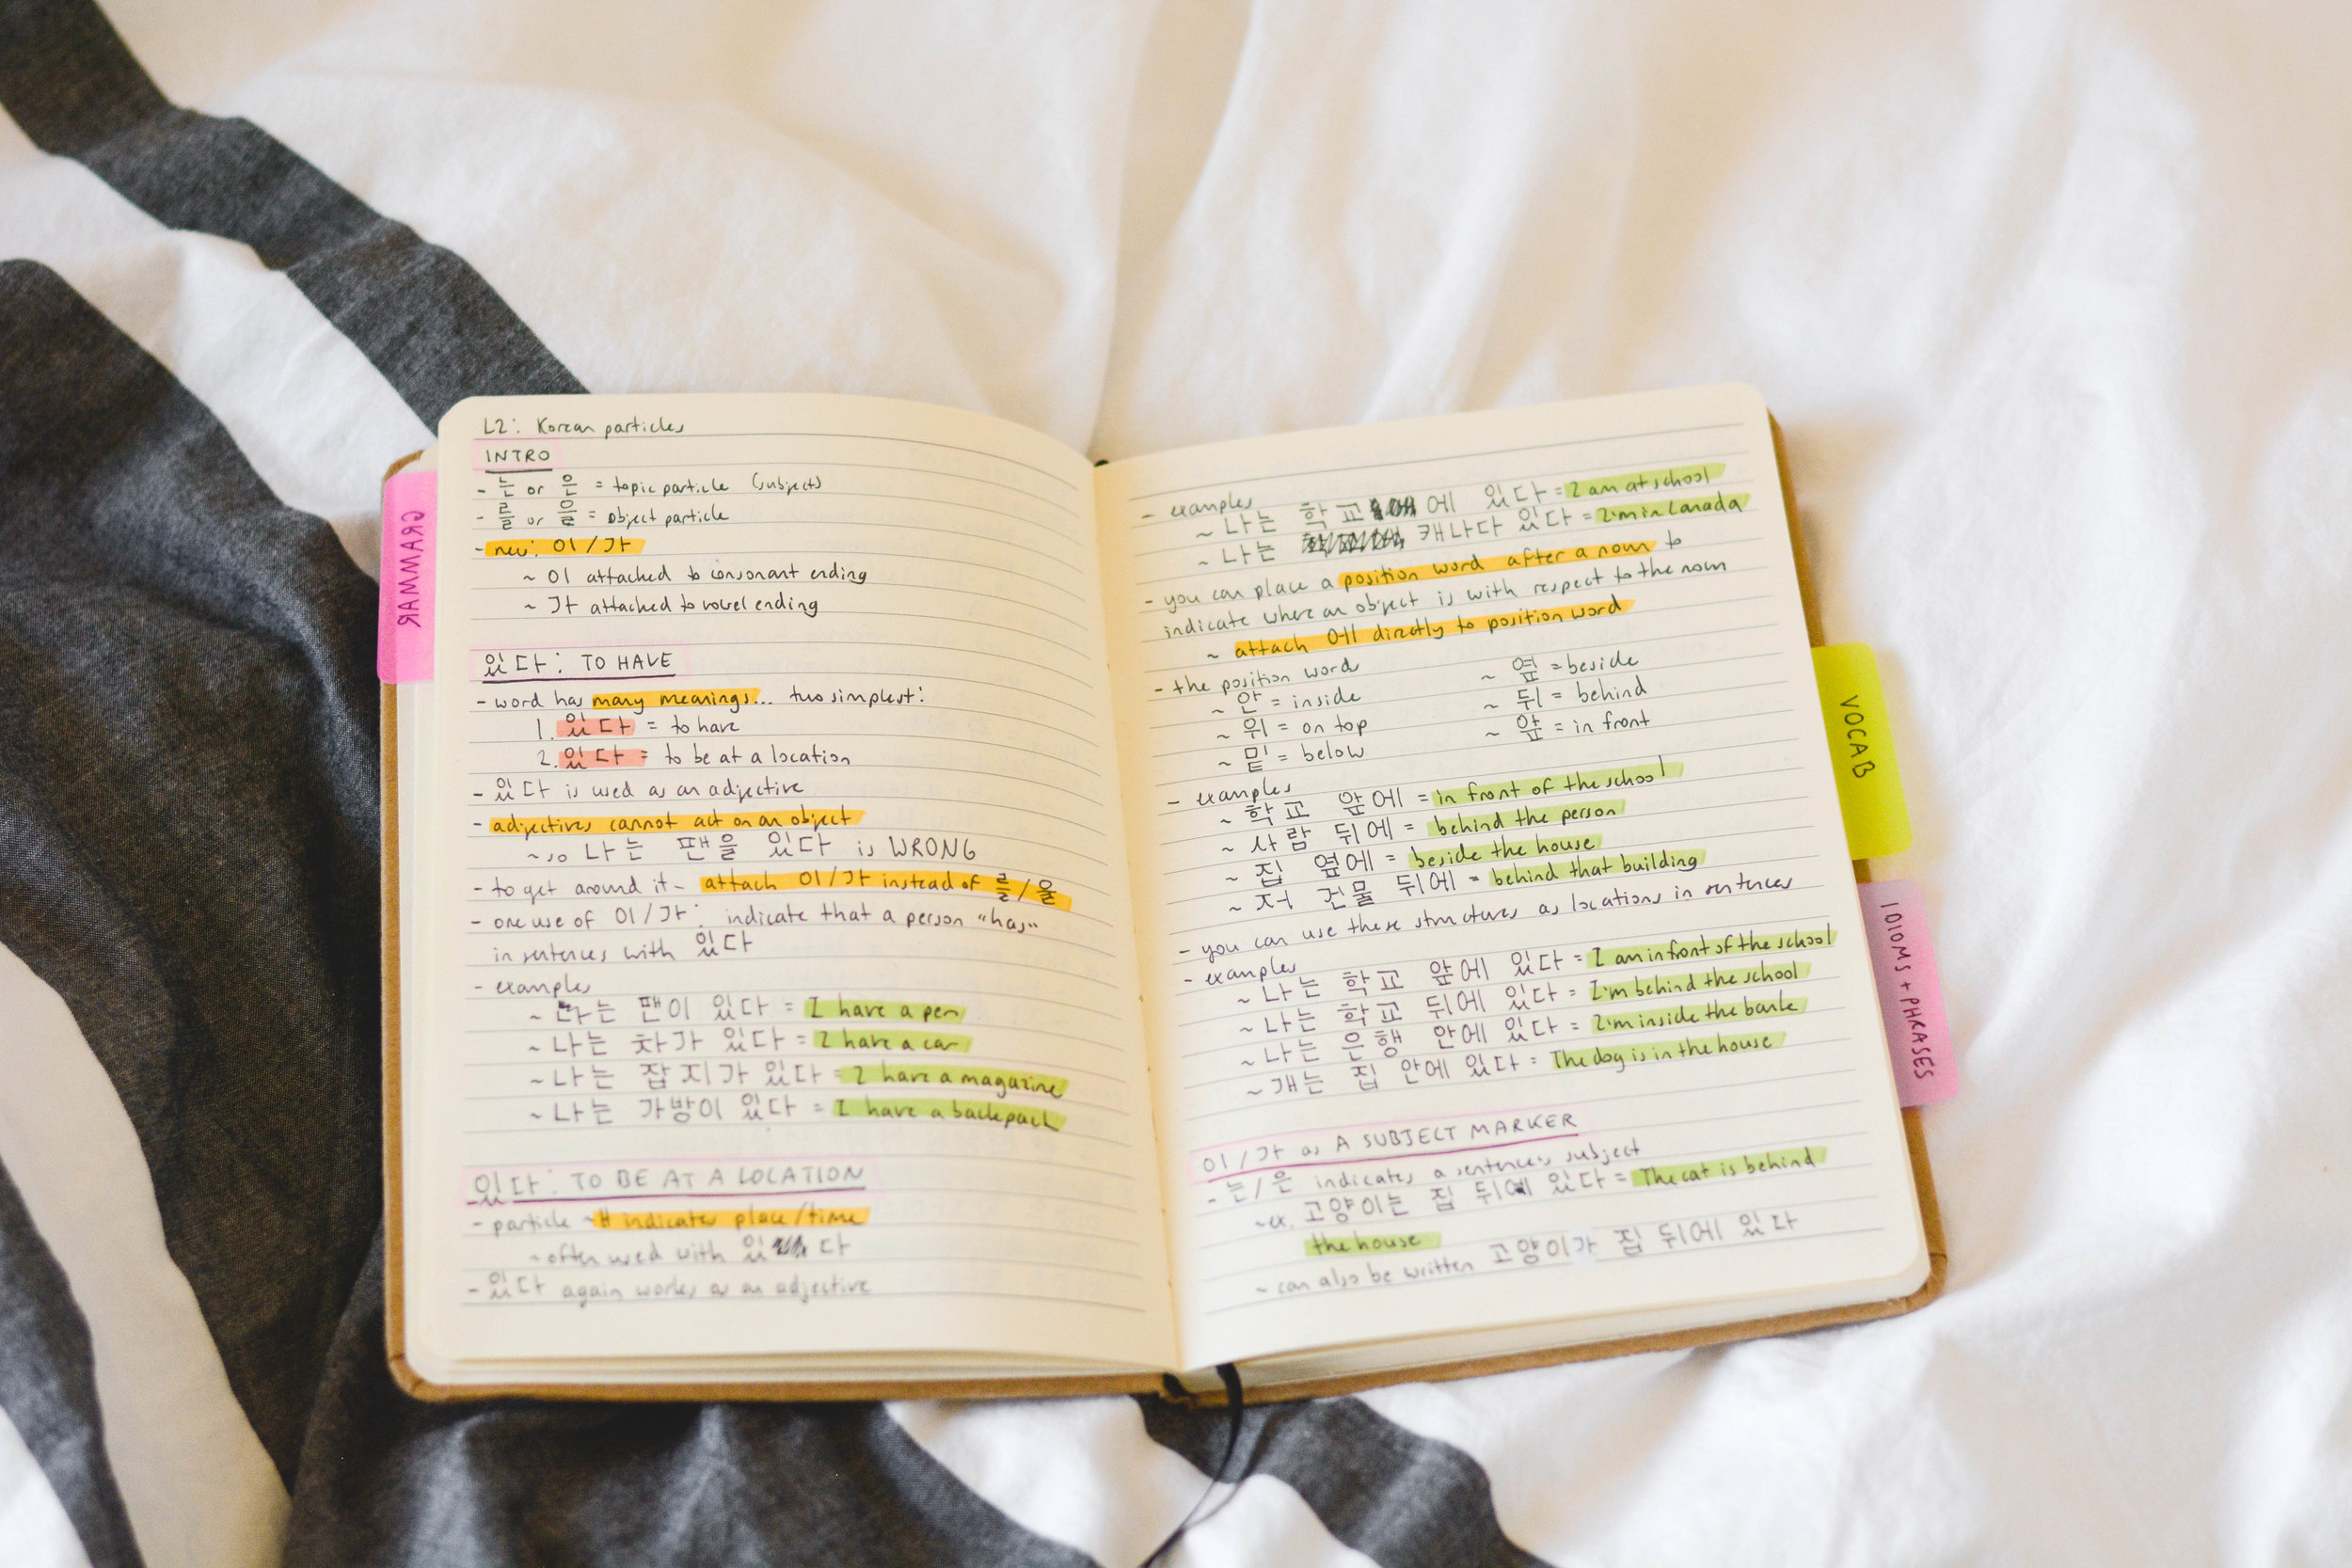 L2: Korean particles
INTRO
- 는 or 은 = topic particle (subject)
- 를 or 을 = object particle
- new: 이/가
~ 이 attached to consonant ending
~ 가 attached to vowel ending
있다: TO HAVE
- word has many meanings... two simplest:
1. 있다 = to have
2. 있다 = to be at a location
- 있다 is used as an adjective
- adjectives cannot act on an object
~ so 나는 팬을 있다 is WRONG
- to get around it - attach 이/가 instead of 를/을
- one use of 이/가: indicate that a person "has"
in sentences with 있다
- examples
~ 나는 팬이 있다 = I have a pen
~ 나는 차가 있다 = I have a car
~ 나는 잡지가 있다 = I have a magazine
~ 나는 가방이 있다 = I have a backpack
있다: TO BE AT A LOCATION
- particle ~에 indicates place/time
~ often used with 있다
- 있다 again works as an adjective
- examples
~ 나는 학교에 있다 = I am at school
~ 나는 캐나다 있다 = I'm in Canada
- you can place a position word after a noun to
indicate where an object is with respect to the noun
~ attach 에 directly to position word
- the position words
~ 안 = inside
~ 위 = on top
~ 밑 = below
~ 옆 = beside
~ 뒤 = behind
~ 앞 = in front
- examples
~ 학교 앞에 = in front of the school
~ 사람 뒤에 = behind the person
~ 집 옆에 = beside the house
~ 저 건물 뒤에 = behind that building
- you can use these structures as locations in sentences
- examples
~ 나는 학교 앞에 있다 = I am in front of the school
~ 나는 학교 뒤에 있다 = I'm behind the school
~ 나는 은행 안에 있다 = I'm inside the bank
~ 개는 집 안에 있다 = The dog is in the house
이/가 as A SUBJECT MARKER
- 는/은 indicates a sentences subject
~ ex. 고양이는 집 뒤에 있다 = The cat is behind
the house
~ can also be written 고양이가 집 뒤에 있다
GRAMMAR
VOCAB
IDIOMS + PHRASES